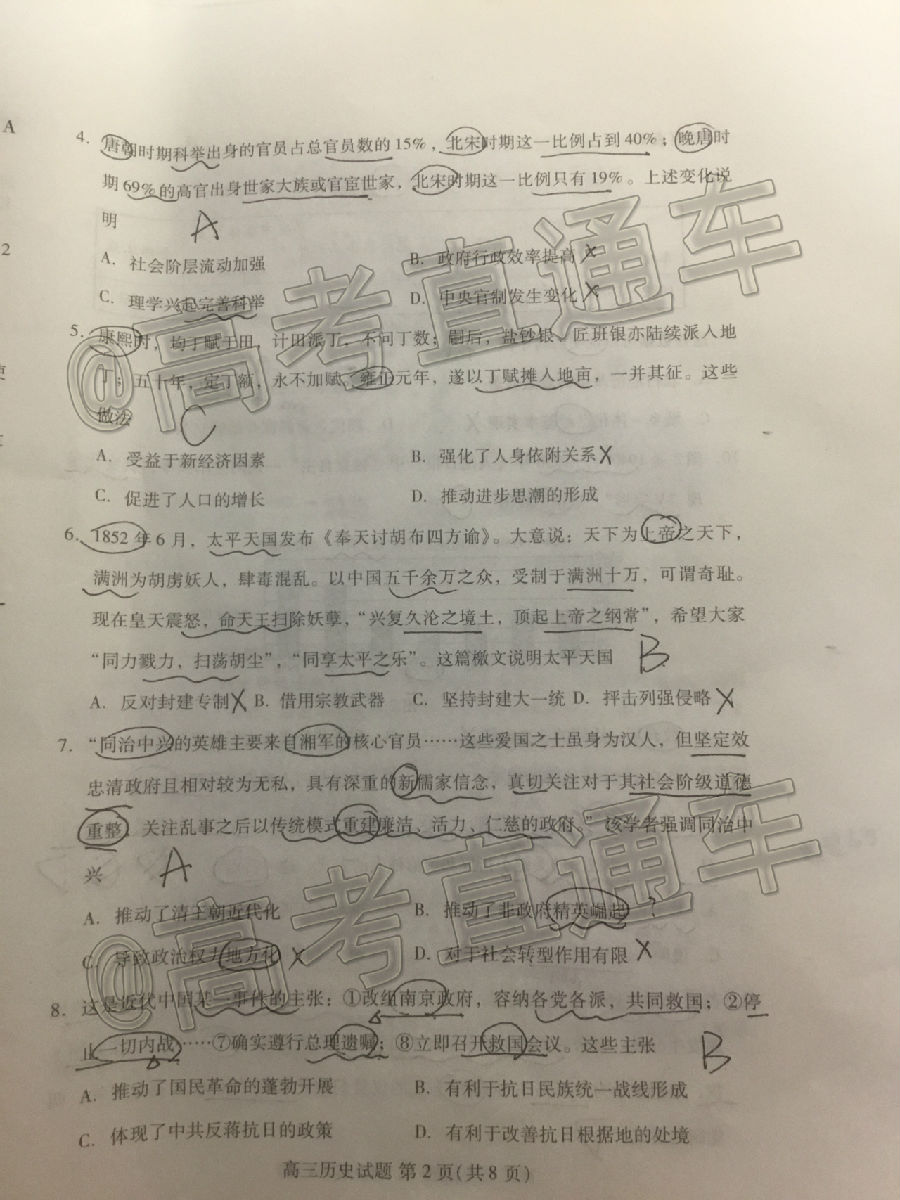 A
2
4. 唐朝时期科举出身的官员占总官员数的15%，北宋时期这一比例占到40%；晚唐时
期69%的高官出身世家大族或官宦世家，北宋时期这一比例只有19%。上述变化说
明 A
A. 社会阶层流动加强 B. 政府行政效率提高 X
C. 理学兴起完善科举 D. 中央官制发生变化 X
5. 康熙时，均丁赋于田，计田派丁，不问丁数；嗣后，盐钞银、匠班银亦陆续派人地
丁；五十年，定丁额，永不加赋，雍正元年，遂以丁赋摊人地亩，一并其征。这些
做法 C
A. 受益于新经济因素 B. 强化了人身依附关系 X
C. 促进了人口的增长 D. 推动进步思潮的形成
6. 1852年6月，太平天国发布《奉天讨胡布四方谕》。大意说：天下为上帝之天下，
满洲为胡虏妖人，肆毒混乱。以中国五千余万之众，受制于满洲十万，可谓奇耻。
现在皇天震怒，命天王扫除妖孽，“兴复久沦之境土，顶起上帝之纲常”，希望大家
“同力戮力，扫荡胡尘”，“同享太平之乐”。这篇檄文说明太平天国 B
A. 反对封建专制 X B. 借用宗教武器 C. 坚持封建大一统 D. 抨击列强侵略 X
7. “同治中兴的英雄主要来自湘军的核心官员……这些爱国之士虽身为汉人，但坚定效
忠清政府且相对较为无私，具有深重的新儒家信念，真切关注对于其社会阶级道德
重整，关注乱事之后以传统模式重建廉洁、活力、仁慈的政府。”该学者强调同治中
兴 A
A. 推动了清王朝近代化 B. 推动了非政府精英崛起 ?
C. 导致政治权力地方化 X D. 对于社会转型作用有限 X
8. 这是近代中国某一事件的主张：①改组南京政府，容纳各党各派，共同救国；②停
止一切内战……⑦确实遵行总理遗嘱；⑧立即召开救国会议。这些主张 B
A. 推动了国民革命的蓬勃开展 B. 有利于抗日民族统一战线形成
C. 体现了中共反蒋抗日的政策 D. 有利于改善抗日根据地的处境
高三历史试题 第2页(共8页)
@高考直通车
@高考直通车